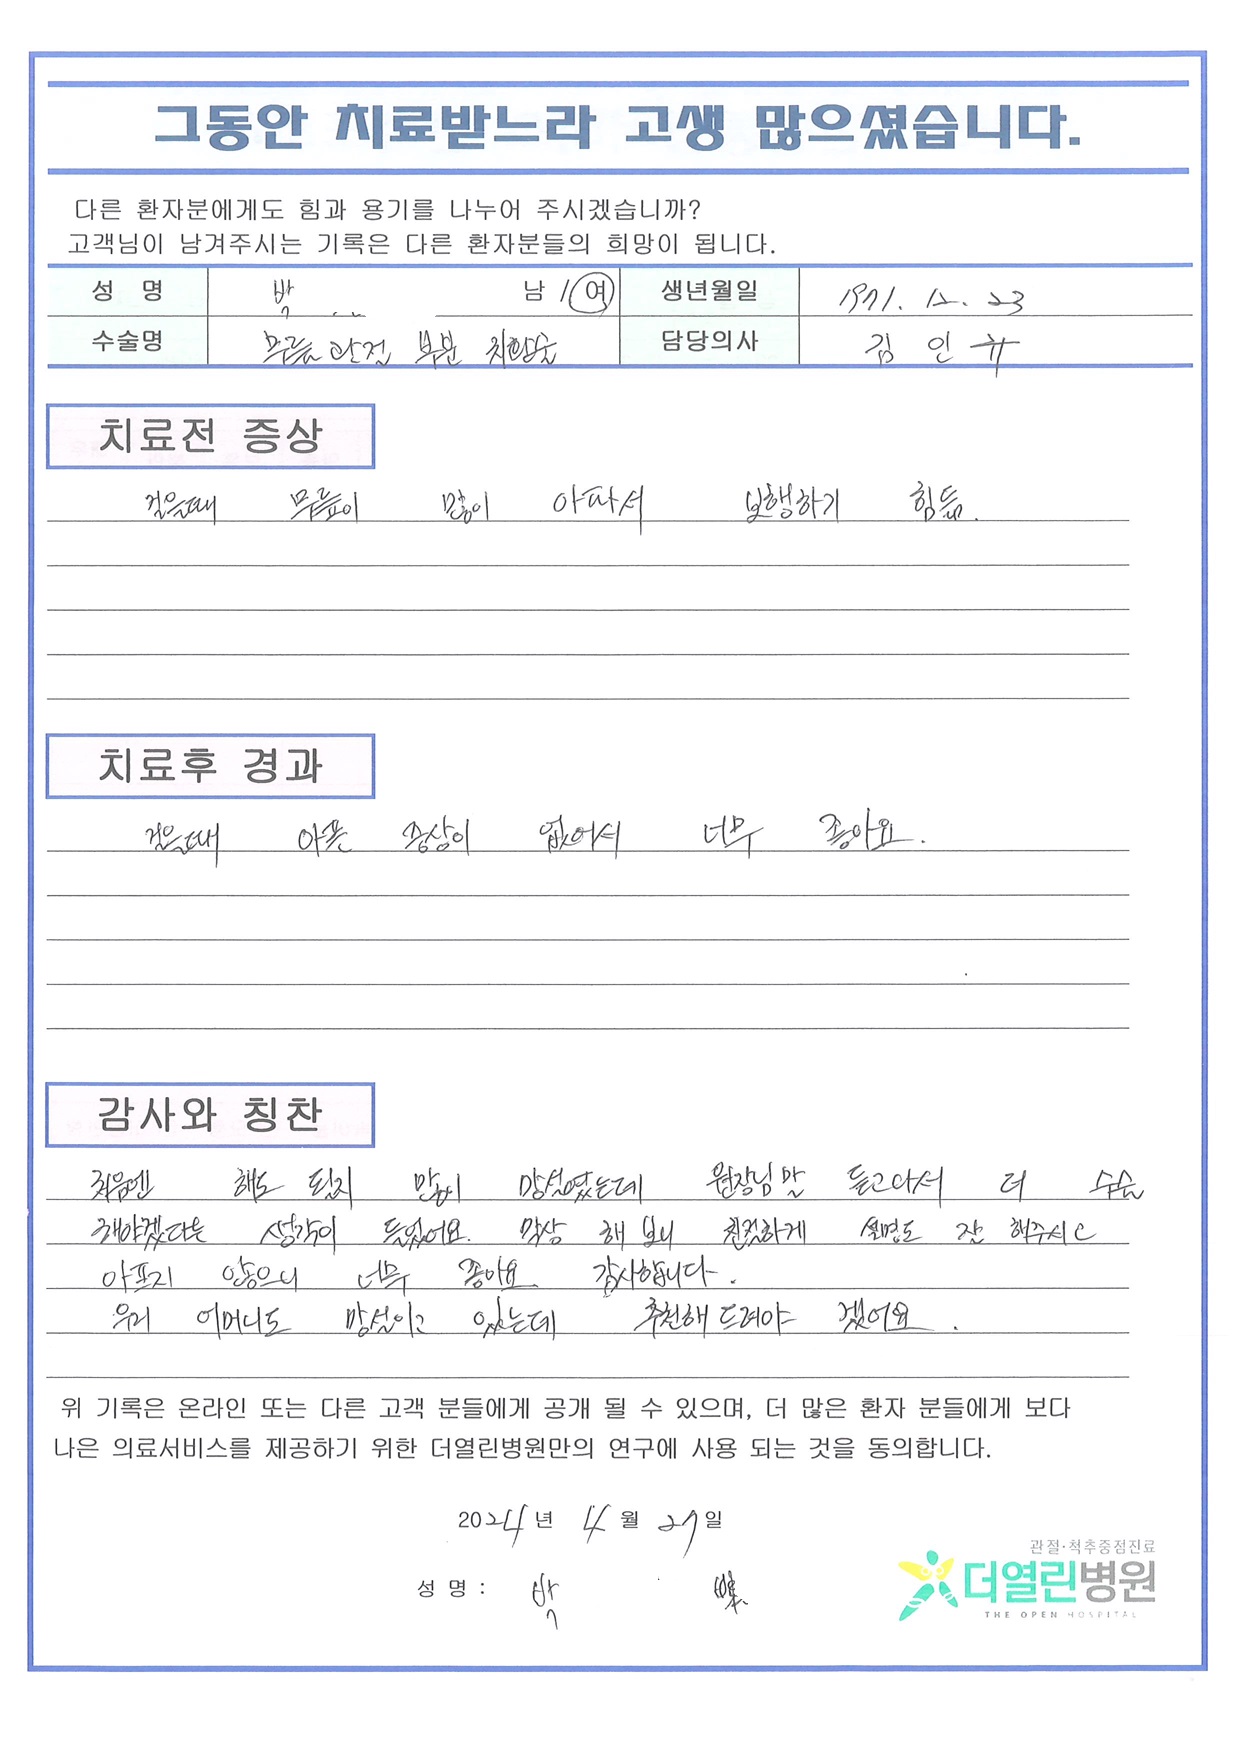 그동안 치료받느라 고생 많으셨습니다.
다른 환자분에게도 힘과 용기를 나누어 주시겠습니까?
고객님이 남겨주시는 기록은 다른 환자분들의 희망이 됩니다.
성 명 박 남 / 여 생년월일 1971. 12. 23
수술명 무릎관절 부분 치환술 담당의사 김 인 규
치료전 증상
걸을때 무릎이 많이 아파서 보행하기 힘듦.
치료후 경과
걸을때 아픈 증상이 없어서 너무 좋아요.
감사와 칭찬
처음엔 해도 될지 많이 망설였는데 원장님 말 듣고나서 더 수술
해야겠다는 생각이 들었어요. 막상 해 보니 친절하게 설명도 잘 해주시고
아프지 않으니 너무 좋아요. 감사합니다.
우리 어머니도 망설이고 있는데 추천해 드려야 겠어요.
위 기록은 온라인 또는 다른 고객 분들에게 공개 될 수 있으며, 더 많은 환자 분들에게 보다
나은 의료서비스를 제공하기 위한 더열린병원만의 연구에 사용 되는 것을 동의합니다.
2024년 4월 27일
성 명 : 박
관절·척추중점진료
더열린병원
THE OPEN HOSPITAL